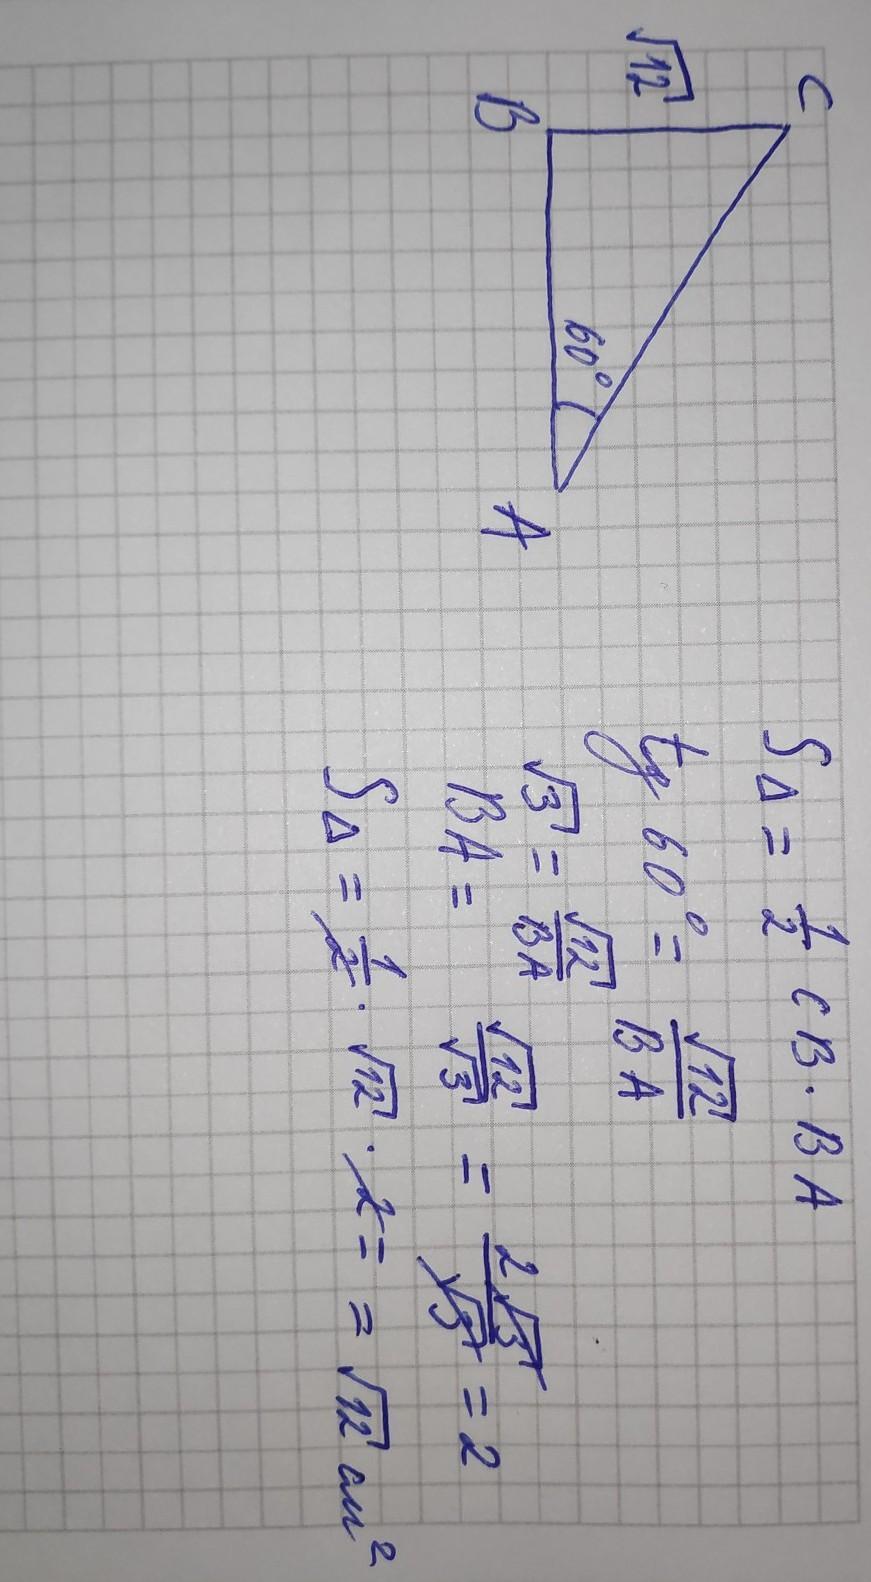 C
√12
B
60°
A
S△ = 1/2 CB · BA
tg 60° = √12/BA
√3 = √12/BA
BA = √12/√3 = 2√3/√3 = 2
S△ = 1/2 · √12 · 2 = = √12 см²